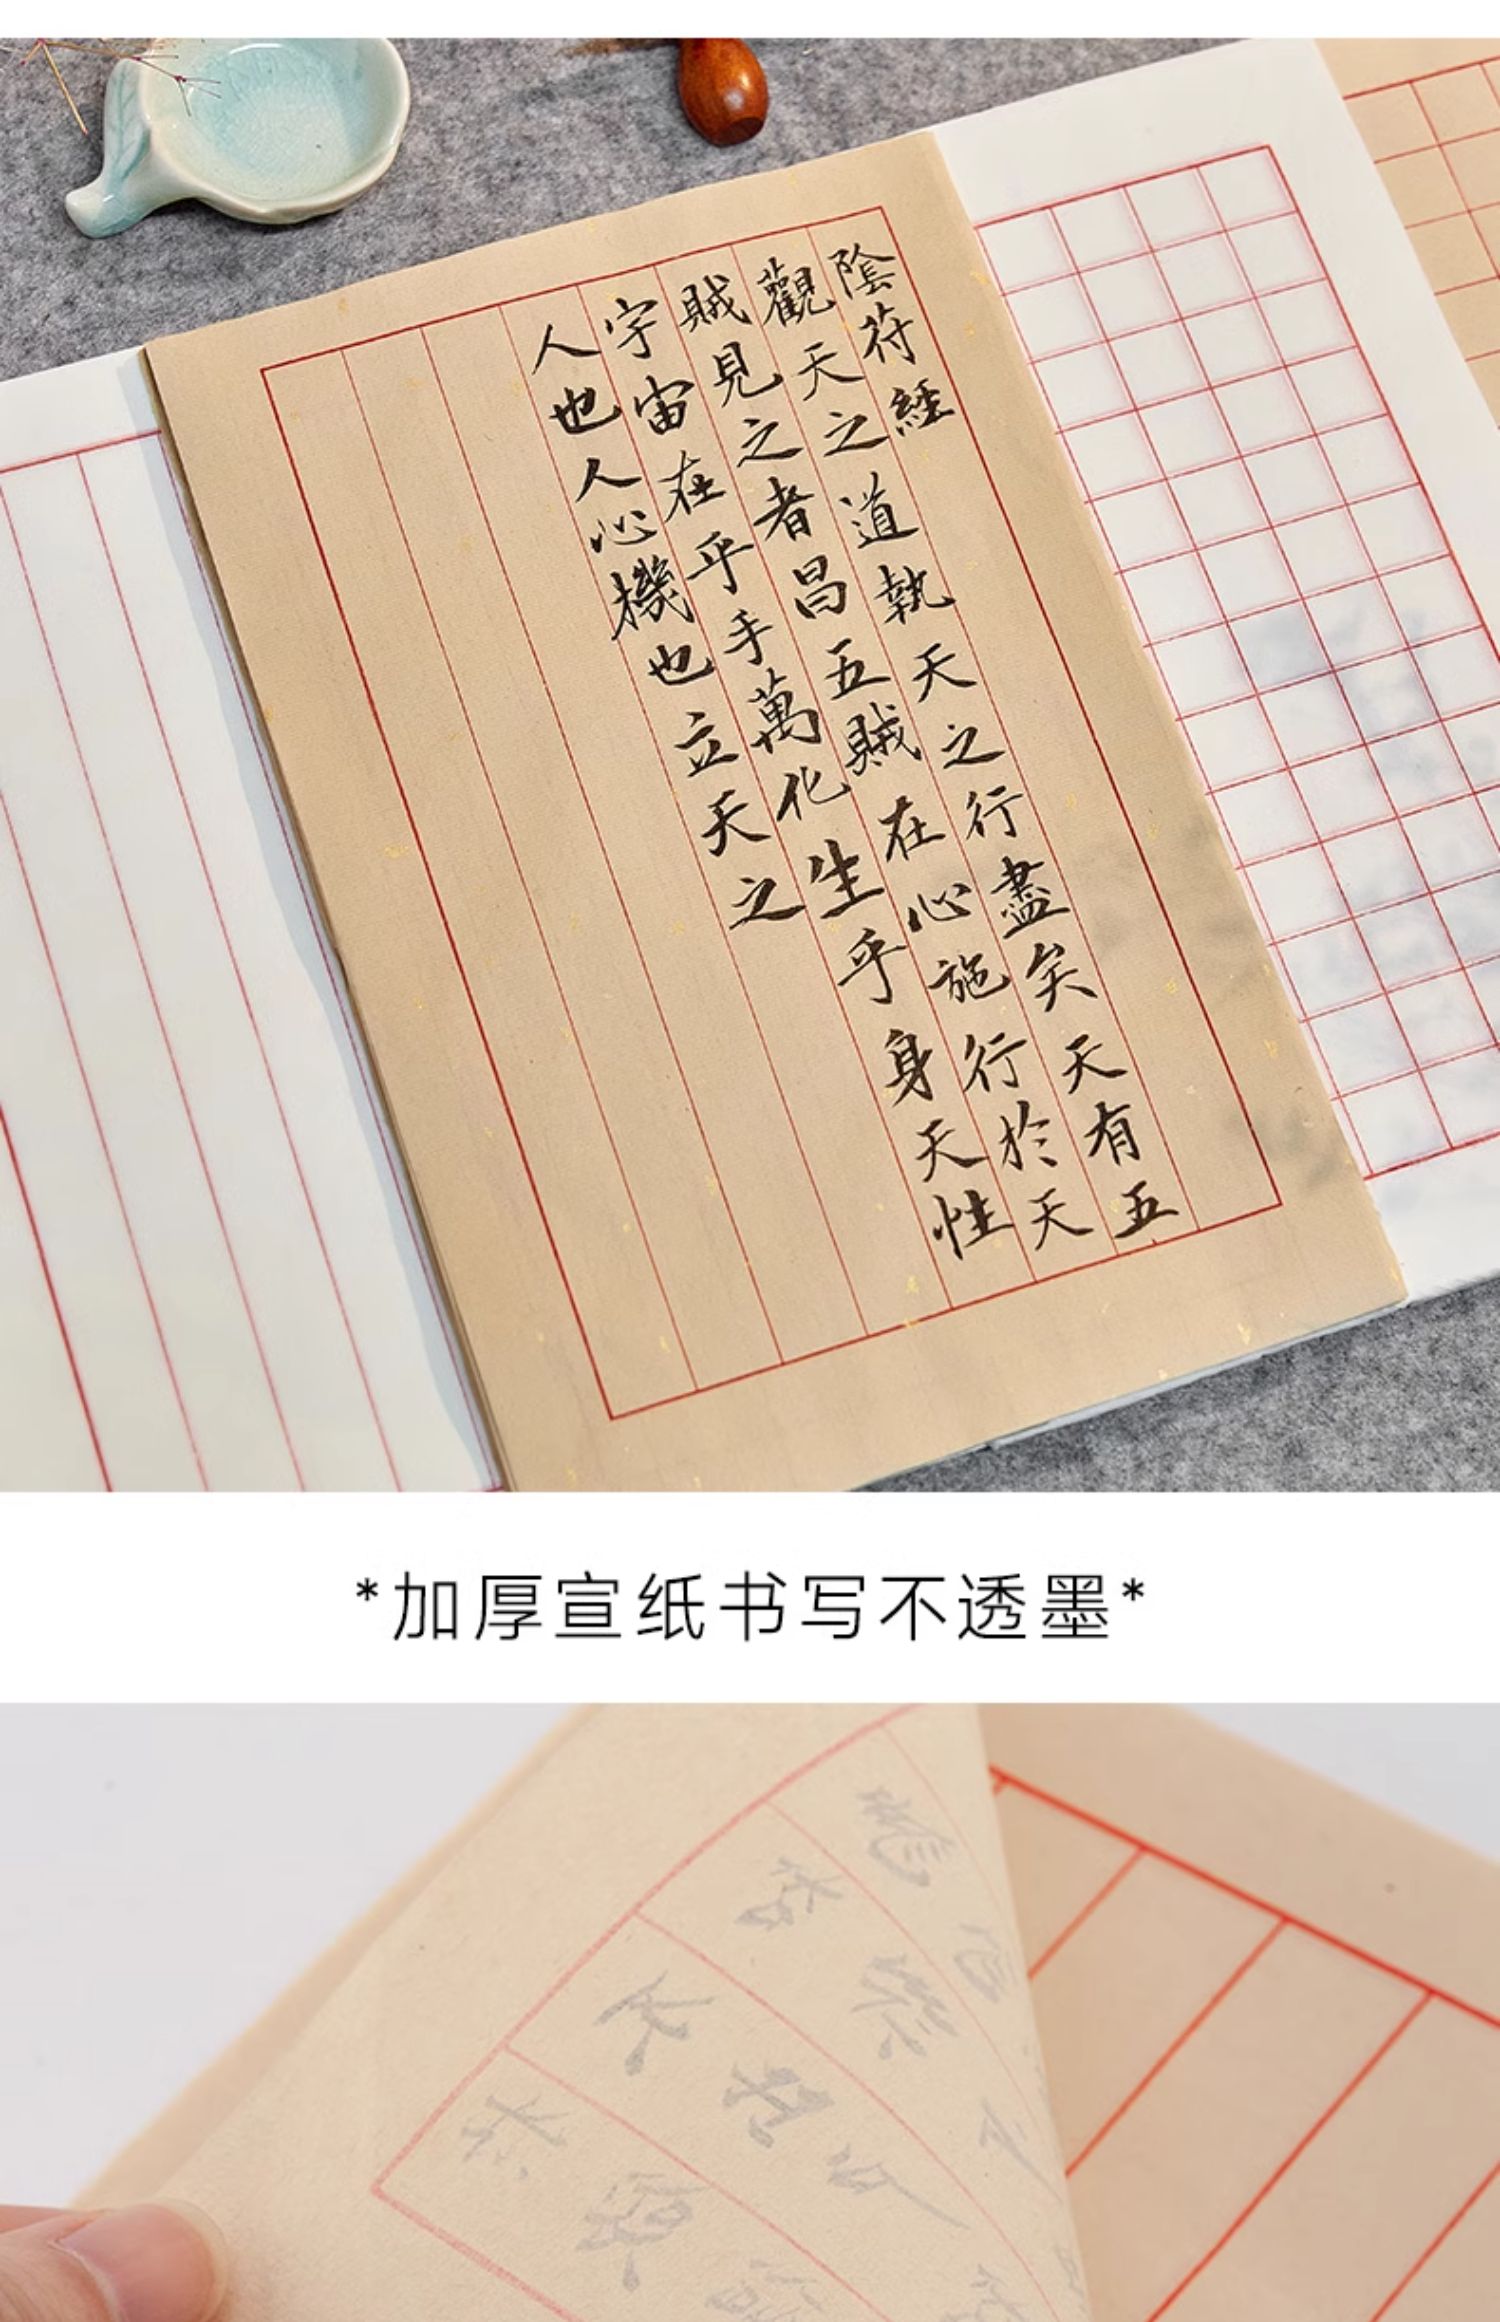 陰符經
觀天之道執天之行盡矣天有五
賊見之者昌五賊在心施行於天
宇宙在乎手萬化生乎身天性
人也人心機也立天之
*加厚宣纸书写不透墨*